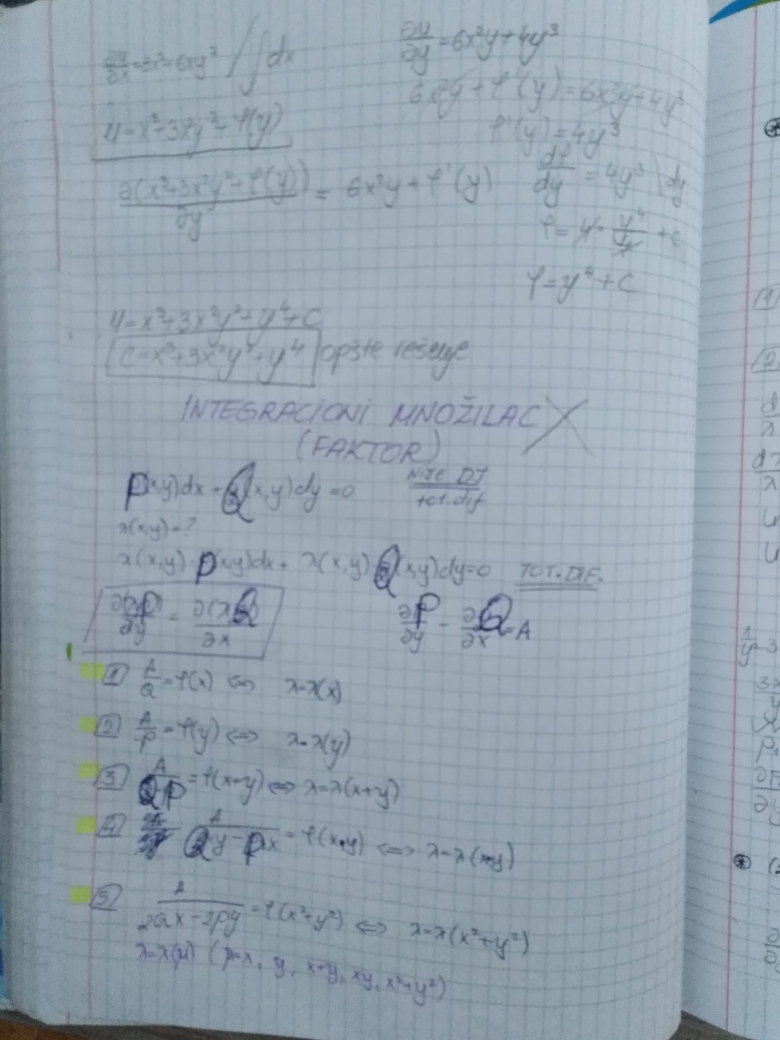 ∂u/∂x = 3x²+6xy² / ∫dx
∂u/∂y = 6x²y+4y³
6x²y + φ'(y) = 6x²y+4y³
u = x³+3x²y²+φ(y)
φ'(y) = 4y³
∂(x³+3x²y²+φ(y))/∂y = 6x²y + φ'(y)
dφ/dy = 4y³ \ dy
φ = 4· y⁴/4 + c
φ = y⁴ + C
u = x³+3x²y²+y⁴+C
C = x³+3x²y²+y⁴ opšte rešenje
INTEGRACIONI MNOŽILAC
(FAKTOR)
P(x,y)dx + Q(x,y)dy = 0 NIJE DJ tot. dif
λ(x,y) = ?
λ(x,y)·P(x,y)dx + λ(x,y)·Q(x,y)dy = 0 TOT. DIF.
∂(λP)/∂y = ∂(λQ)/∂x
∂P/∂y - ∂Q/∂x = A
1 A/Q = φ(x) ⇔ λ=λ(x)
2 A/P = φ(y) ⇔ λ=λ(y)
3 A/QP = φ(x+y) ⇔ λ=λ(x+y)
4 A/Qy-Px = φ(x·y) ⇔ λ=λ(x·y)
5 A/2Qx-2Py = φ(x²+y²) ⇔ λ=λ(x²+y²)
λ=λ(μ) (μ=x, y, x+y, xy, x²+y²)